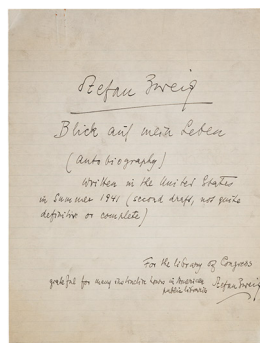 Stefan Zweig
Blick auf mein Leben
(Autobiography)
written in the United States
in Summer 1941 (second draft, not quite
definitive or complete)
For the Library of Congress
grateful for many instructive hours in American
public libraries Stefan Zweig